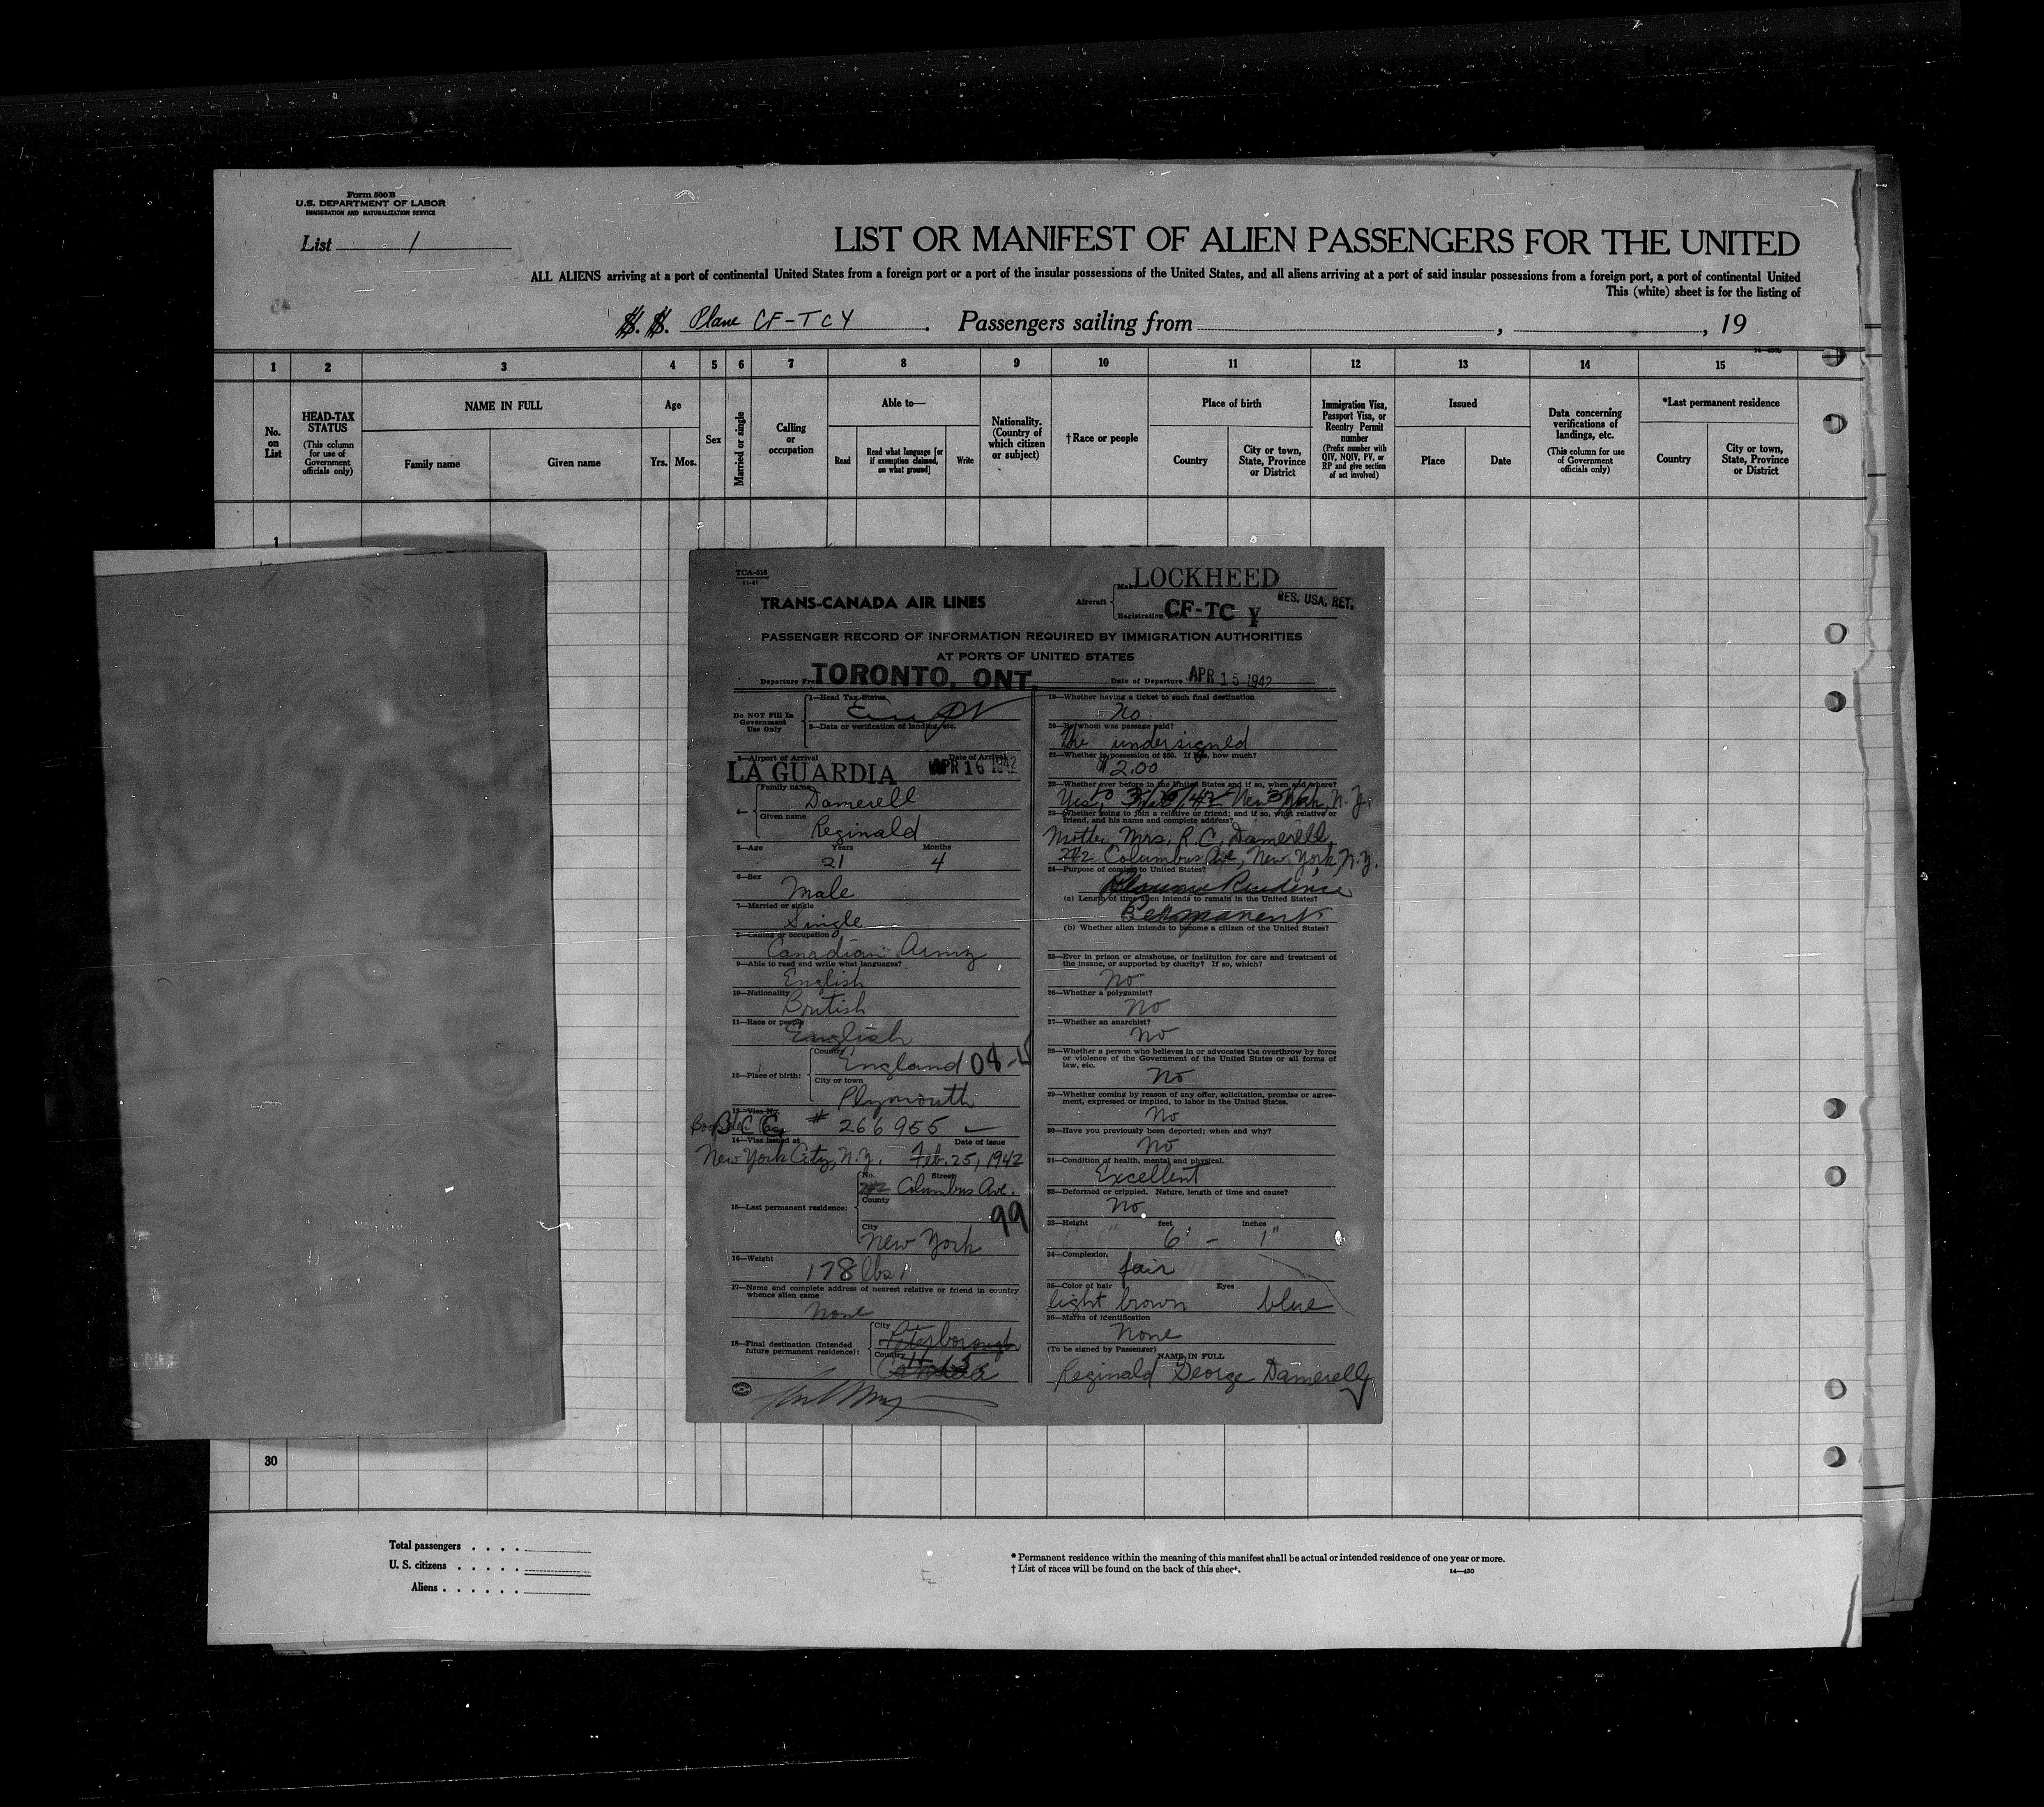 Form 500 B
U.S. DEPARTMENT OF LABOR
IMMIGRATION AND NATURALIZATION SERVICE
List 1
LIST OR MANIFEST OF ALIEN PASSENGERS FOR THE UNITED
ALL ALIENS arriving at a port of continental United States from a foreign port or a port of the insular possessions of the United States, and all aliens arriving at a port of said insular possessions from a foreign port, a port of continental United
This (white) sheet is for the listing of
S. S. Plane CF-TCY. Passengers sailing from , , 19
1 2 3 4 5 6 7 8 9 10 11 12 13 14 15
No. on List
HEAD-TAX STATUS
(This column for use of Government officials only)
NAME IN FULL
Family name
Given name
Age
Yrs. Mos.
Sex
Married or single
Calling or occupation
Able to—
Read
Read what language [or if exemption claimed, on what ground]
Write
Nationality. (Country of which citizen or subject)
†Race or people
Place of birth
Country
City or town, State, Province or District
Immigration Visa, Passport Visa, or Reentry Permit number
(Prefix number with QIV, NQIV, PV, or RP and give section of act involved)
Issued
Place
Date
Data concerning verifications of landings, etc.
(This column for use of Government officials only)
*Last permanent residence
Country
City or town, State, Province or District
1
TCA-518
11-41
TRANS-CANADA AIR LINES
Aircraft
Make LOCKHEED
Registration CF-TC Y
RES. USA, RET.
PASSENGER RECORD OF INFORMATION REQUIRED BY IMMIGRATION AUTHORITIES
AT PORTS OF UNITED STATES
Departure From TORONTO, ONT.
Date of Departure APR 15 1942
Do NOT Fill In Government Use Only
1—Head Tax Status
2—Date or verification of landing, etc.
3—Airport of Arrival
Date of Arrival
LA GUARDIA APR 16 1942
4—
Family name Damerell
Given name Reginald
5—Age Years Months
21 4
6—Sex
Male
7—Married or single
Single
8—Calling or occupation
Canadian Army
9—Able to read and write what languages?
English
10—Nationality
British
11—Race or people
English
12—Place of birth:
Country England
City or town
Plymouth
13—Visa No.
# 266955
14—Visa issued at
Date of Issue
New York City, N.Y. Feb. 25, 1942
15—Last permanent residence:
No. Street
Columbus Ave.
County
99
City
New York
16—Weight
178 lbs
17—Name and complete address of nearest relative or friend in country
whence alien came
None
18—Final destination (Intended
future permanent residence):
City
Peterborough
Country
Canada
19—Whether having a ticket to such final destination
No
20—By whom was passage paid?
The undersigned
21—Whether in possession of $50. If less, how much?
$2.00
22—Whether ever before in the United States and if so, when and where?
Yes New York, N.Y.
23—Whether going to join a relative or friend; and if so, what relative or
friend, and his name and complete address?
Mother Mrs. R C. Damerell,
Columbus Ave, New York, N.Y.
24—Purpose of coming to United States?
Residence
(a) Length of time alien intends to remain in the United States?
Permanent
(b) Whether alien intends to become a citizen of the United States?
25—Ever in prison or almshouse, or institution for care and treatment of
the insane, or supported by charity? If so, which?
No
26—Whether a polygamist?
No
27—Whether an anarchist?
No
28—Whether a person who believes in or advocates the overthrow by force
or violence of the Government of the United States or all forms of
law, etc.
No
29—Whether coming by reason of any offer, solicitation, promise or agree-
ment, expressed or implied, to labor in the United States.
No
30—Have you previously been deported; when and why?
No
31—Condition of health, mental and physical.
Excellent
32—Deformed or crippled. Nature, length of time and cause?
No
33—Height feet inches
6' - 1"
34—Complexion
fair
35—Color of hair Eyes
light brown blue
36—Marks of identification
None
(To be signed by Passenger)
NAME IN FULL
Reginald George Damerell
30
Total passengers
U. S. citizens
Aliens
* Permanent residence within the meaning of this manifest shall be actual or intended residence of one year or more.
† List of races will be found on the back of this sheet.
14—430